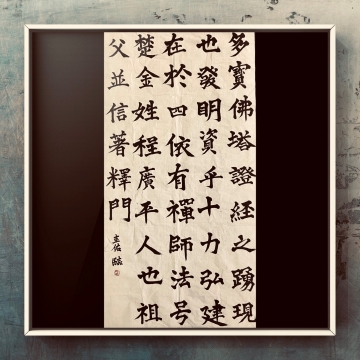 多寶佛塔證經之踴現
也發明資乎十力弘建
在於四依有禪師法号
楚金姓程廣平人也祖
父並信著釋門
佑臨